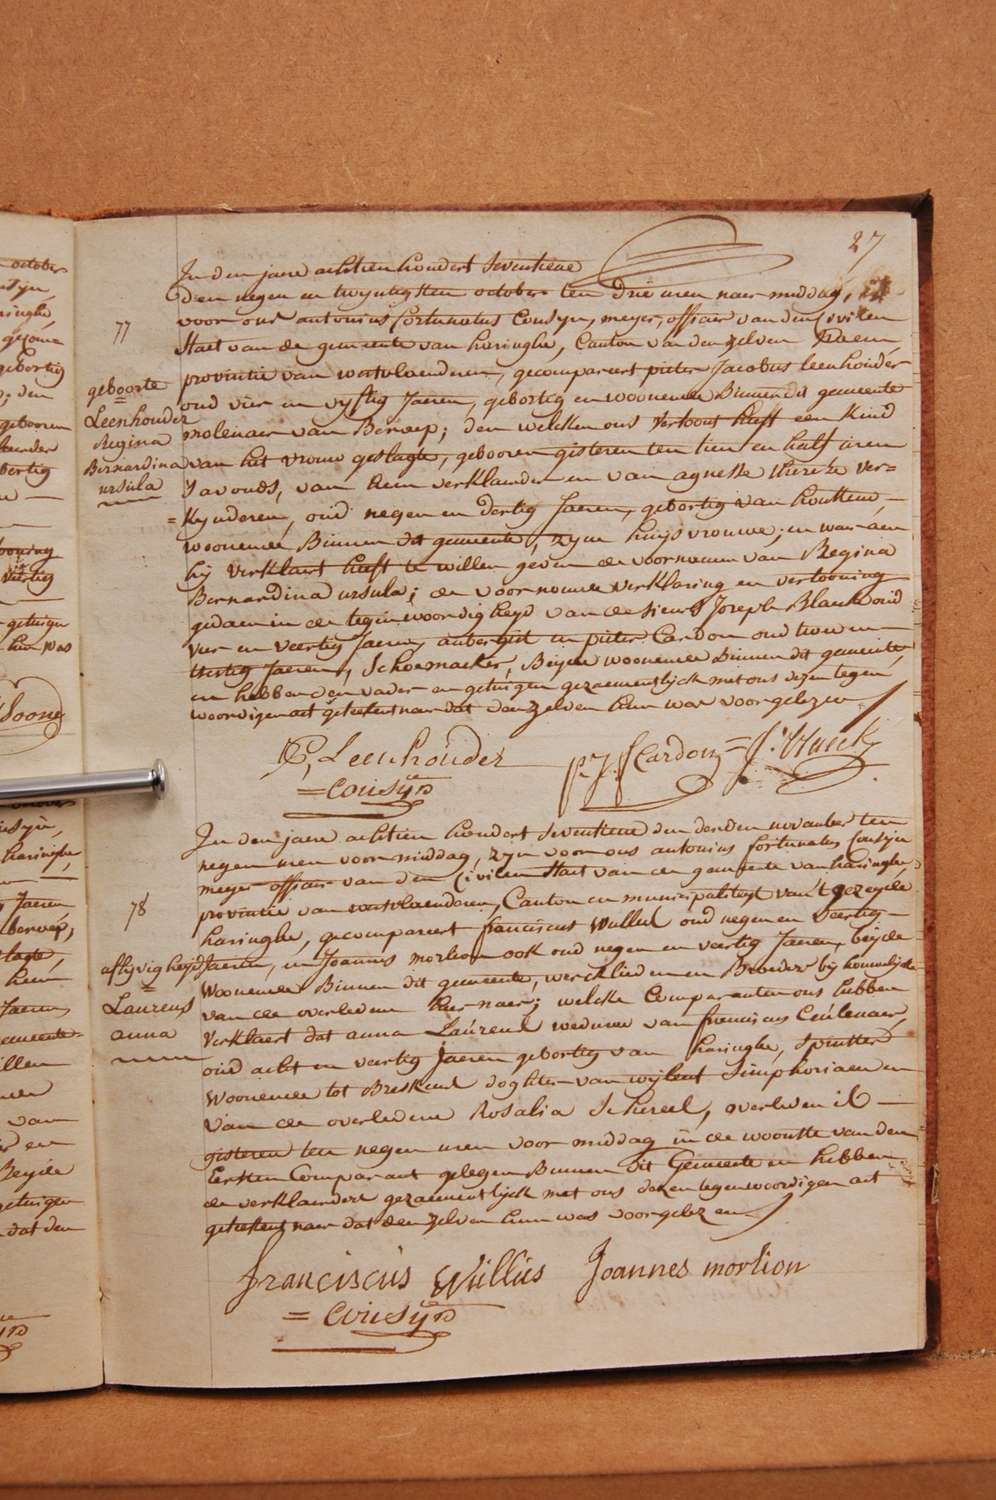 27
In den jare achtien hondert seventiene
den negen en twijntigsten october ten drie uren naer middag,
voor ons antonius fortunatus Cousyn, meyer, officier van den Civilen
Staet van de gemeente van haringhe, Canton van den zelven
provintie van westvlaenderen, gecompareert pieter Jacobus leenhouder
oud vier en vyftig Jaeren, gebortig en woonende Binnen dit gemeente
molenaer van Beroep; den welcken ons Verthoont heeft een kind
van het vrouw geslagte, gebooren gisteren ten tien en half uren
s'avonds, van hem verklaerder en van agnesse therese ver=
=kynderen, oud negen en dertig Jaeren, gebortig van houttem,
woonende Binnen dit gemeente, zyne huijsvrouwe; en waer aen
hy verklaert heeft te willen geven de voornaemen van Regina
Bernardina ursula; de voornoemde verklaring en vertooning
gedaen in de tegenwoordigheyd van de sieurs Joseph Blanckx oud
vier en veertig Jaeren, aubergist en pieter Cardon oud twee en
dertig Jaeren, Schoemaeker, Beyde woonende Binnen dit gemeente,
en hebben den vader en getuigen gezaementlyck met ons dezen tegen
woordigen act geteekent naer dat den zelven hun was voorgelezen
77
geboorte
Leenhouder
Regina
Bernardina
ursula
P, Leenhouder
p. J. Cardon = J. Blanckx
= Cousyn
In den jare achtien hondert seventiene den derden november ten
negen uren voor middag, zyn voor ons antonius fortunatus Cousyn
meyer officier van den Civilen Staet van de gemeente van haringhe,
provintie van westvlaenderen, Canton en municipaliteyt van't gezeyde
haringhe, gecompareert franciscus Wullus oud negen en veertig
Jaeren, en Joannes morlion ook oud negen en veertig Jaeren, beyde
Woonende Binnen dit gemeente, wercklieden en Broeder by houwelijcke
van de overledene hier naer; welcke Comparanten ons hebben
Verklaert dat anna Laurens weduwe van franciscus Ceulenaer,
oud acht en veertig Jaeren gebortig van haringhe, Spinster
Woonende tot Breskens doghter van wylent Simphoriaen en
van de overledene Rosalia Schereel, overleden is
gisteren ten negen uren voor middag in de woonste van den
Eersten Comparant gelegen Binnen dit Gemeente en hebben
de verklaerders gezaementlyck met ons dezen tegenwoordigen act
geteekent naer dat den zelven hun was voorgelezen
78
aflyvigheyd
Laurens
anna
franciscus Wullus Joannes morlion
= Cousyn